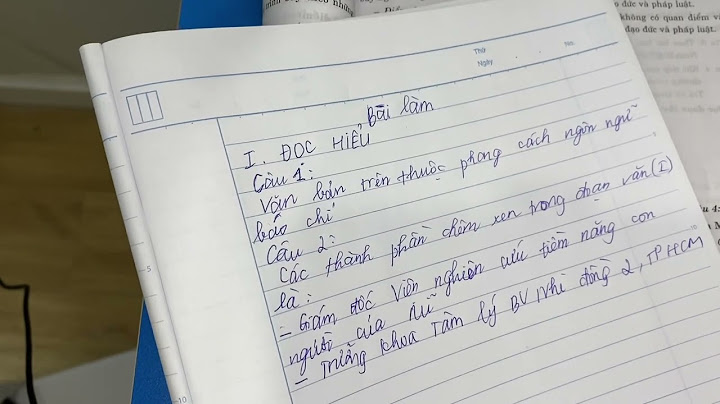 đức và pháp luật.
không có quan điểm
đạo đức và pháp luật.
Thứ
Ngày
No.
Bài làm
I. ĐỌC HIỂU
Câu 1:
Văn bản trên thuộc phong cách ngôn ngữ
báo chí
Câu 2:
Các thành phần chêm xen trong đoạn văn (I)
là:
- Giám đốc Viện nghiên cứu tiềm năng con
người của
- Trưởng khoa Tâm lý BV Nhi đồng 2, TPHCM
5
10